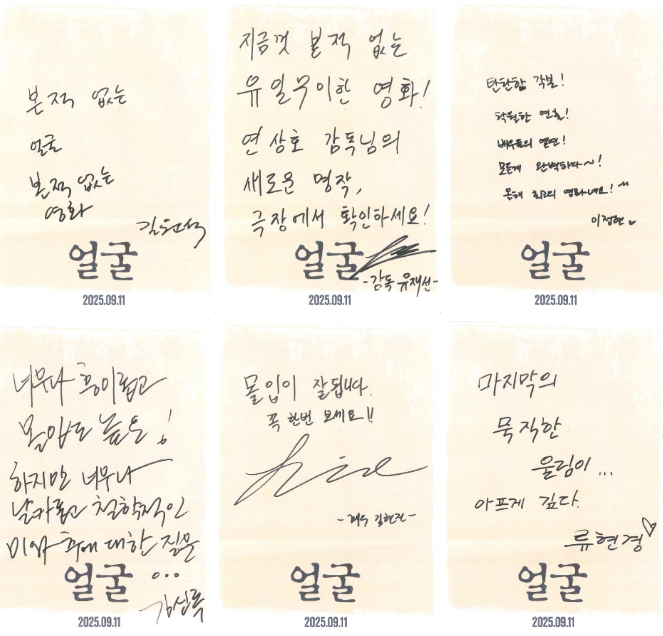 본 적 없는
얼굴
본 적 없는
영화
얼굴
2025.09.11
지금껏 본 적 없는
유일무이한 영화!
연상호 감독님의
새로운 명작,
극장에서 확인하세요!
얼굴
-감독 유재선-
2025.09.11
탄탄한 각본!
탁월한 연출!
배우들의 열연!
모든게 완벽하다~!
올해 최고의 영화네요!
이정현
얼굴
2025.09.11
너무나 흥미롭고
몰입도 높은!
하지만 너무나
날카롭고 철학적인
미와 추에 대한 질문
...
얼굴
김성록
2025.09.11
몰입이 잘됩니다.
꼭 한번 보세요!!
얼굴
2025.09.11
마지막의
묵직한
울림이...
아프게 깊다.
류현경
얼굴
2025.09.11